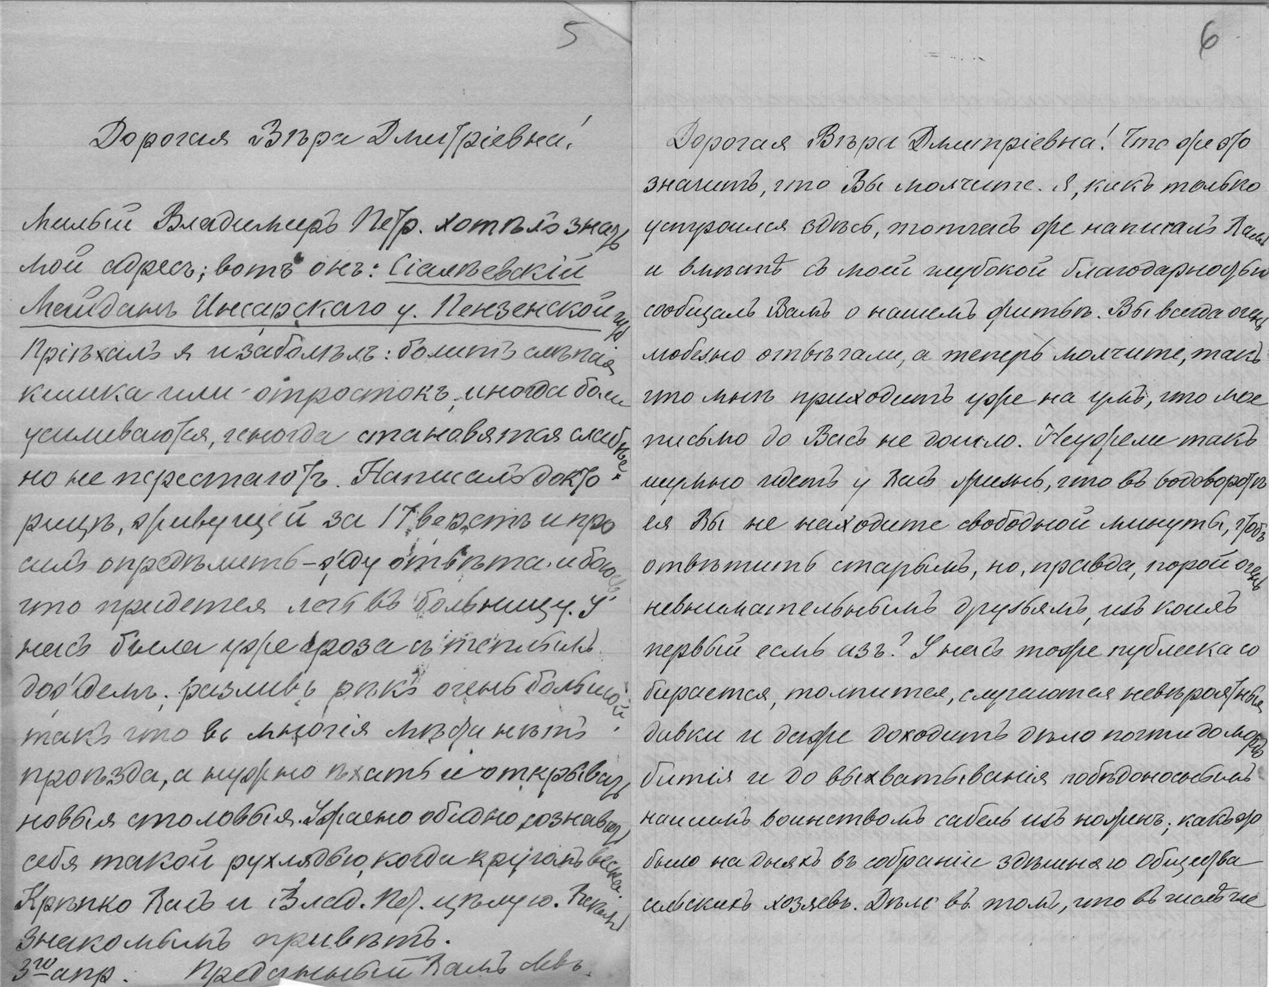 5
Дорогая Вѣра Дмитріевна!
Милый Владимиръ Петр. хотѣлъ знать
мой адресъ; вотъ онъ: Сіалѣевскій
Майданъ Инсарскаго у. Пензенской губ
Пріѣхалъ я и заболѣлъ: болитъ слѣпая
кишка или отростокъ, иногда боли
усиливаются, иногда становятся слабѣе,
но не перестаютъ. Написалъ докто
рицѣ, живущей за 17 верстъ и про
силъ опредѣлить – жду отвѣта и боюсь,
что придется лечь въ больницу. У
насъ была уже гроза съ теплымъ
дождемъ; разливъ рѣкъ очень большой,
такъ что въ многія мѣста нѣтъ
проѣзда, а нужно ѣхать и открывать
новыя столовыя. Ужасно обидно сознавать
себя такой рухлядью, когда кругомъ весна
Крѣпко Васъ и Влад. Пет. цѣлую. Всѣмъ
знакомымъ привѣтъ.
3го апр. Преданный Вамъ Левъ.
6
Дорогая Вѣра Дмитріевна! Что же это
значитъ, что Вы молчите. Я, какъ только
устроился здѣсь, тотчасъ же написалъ Вамъ
и вмѣстѣ съ моей глубокой благодарностью
сообщалъ Вамъ о нашемъ житьѣ. Вы всегда очень
любезно отвѣчали, а теперь молчите, такъ
что мнѣ приходитъ уже на умъ, что мое
письмо до Васъ не дошло. Неужели такъ
шумно идетъ у Васъ жизнь, что въ водоворотѣ
ея Вы не находите свободной минуты, чтобъ
отвѣтить старымъ, но, правда, порой очень
невнимательнымъ друзьямъ, изъ коихъ
первый есмь азъ? У насъ тоже публика со
бирается, толпится, случаются невѣроятныя
давки и даже доходитъ дѣло почти до мордо
битія и до выхватыванія побѣдоноснымъ
нашимъ воинствомъ сабель изъ ноженъ; какъ эо
было на дняхъ въ собраніи здѣшняго Общества
сельскихъ хозяевъ. Дѣло въ томъ, что въ числѣ